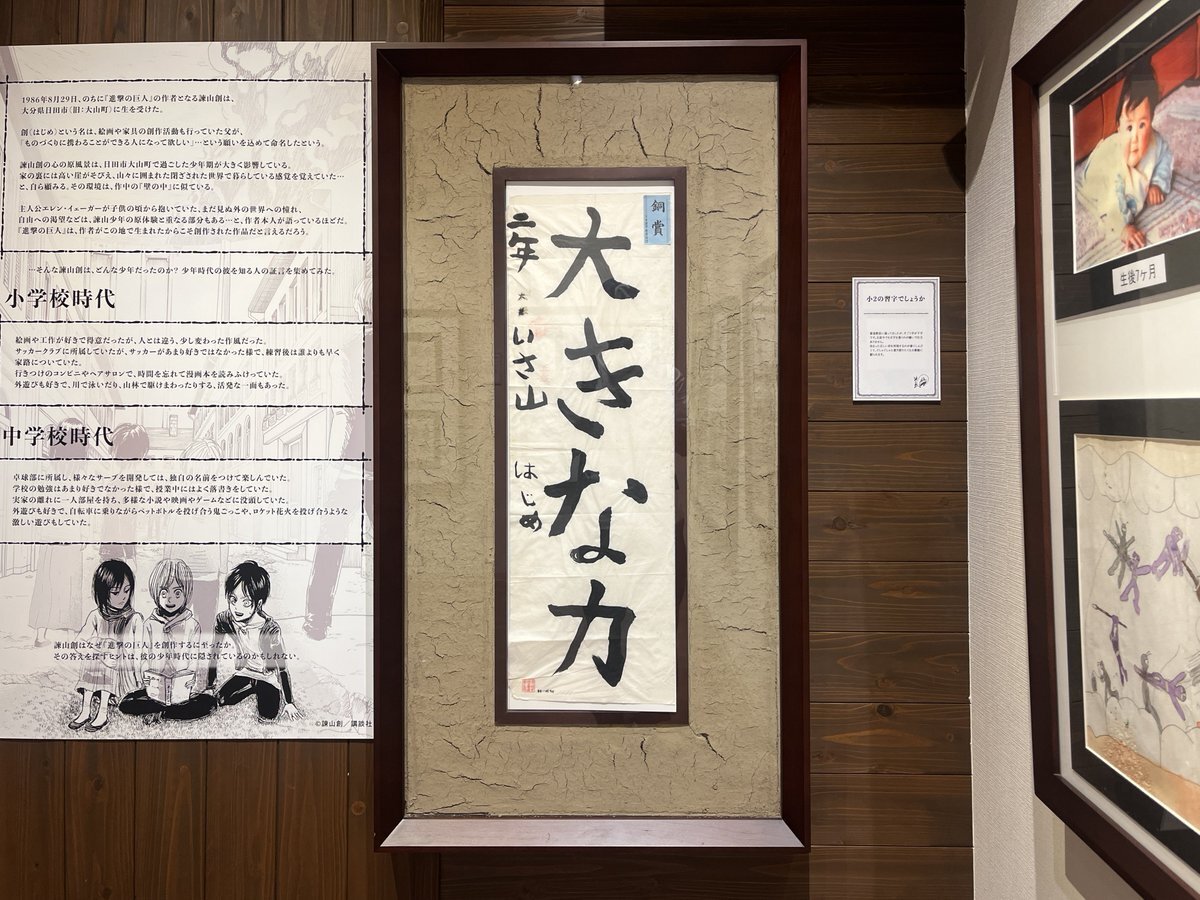 1986年8月29日、のちに『進撃の巨人』の作者となる諫山創は、
大分県日田市（旧：大山町）に生を受けた。
創（はじめ）という名は、絵画や家具の創作活動も行っていた父が、
「ものづくりに携わることができる人になって欲しい」…という願いを込めて命名したという。
諫山創の心の原風景は、日田市大山町で過ごした少年期が大きく影響している。
家の裏には高い崖がそびえ、山々に囲まれた閉ざされた世界で暮らしている感覚を覚えていた…
と、自ら顧みる。その環境は、作中の「壁の中」に似ている。
主人公エレン・イェーガーが子供の頃から抱いていた、まだ見ぬ外の世界への憧れ、
自由への渇望などは、諫山少年の原体験と重なる部分もある…と、作者本人が語っているほどだ。
『進撃の巨人』は、作者がこの地で生まれたからこそ創作された作品だと言えるだろう。
…そんな諫山創は、どんな少年だったのか？ 少年時代の彼を知る人の証言を集めてみた。
小学校時代
絵画や工作が好きで得意だったが、人とは違う、少し変わった作風だった。
サッカークラブに所属していたが、サッカーがあまり好きではなかった様で、練習後は誰よりも早く
家路についていた。
行きつけのコンビニやヘアサロンで、時間を忘れて漫画本を読みふけっていた。
外遊びも好きで、川で泳いだり、山林で駆けまわったりする、活発な一面もあった。
中学校時代
卓球部に所属し、様々なサーブを開発しては、独自の名前をつけて楽しんでいた。
学校の勉強はあまり好きでなかった様で、授業中にはよく落書きをしていた。
実家の離れに一人部屋を持ち、多様な小説や映画やゲームなどに没頭していた。
外遊びも好きで、自転車に乗りながらペットボトルを投げ合う鬼ごっこや、ロケット花火を投げ合うような
激しい遊びもしていた。
諫山創はなぜ『進撃の巨人』を創作するに至ったか。
その答えを探すヒントは、彼の少年時代に隠されているのかもしれない。
©諫山創／講談社
銅賞
大きな力
二年
いさ山 はじめ
小2の習字でしょうか
生後7ヶ月